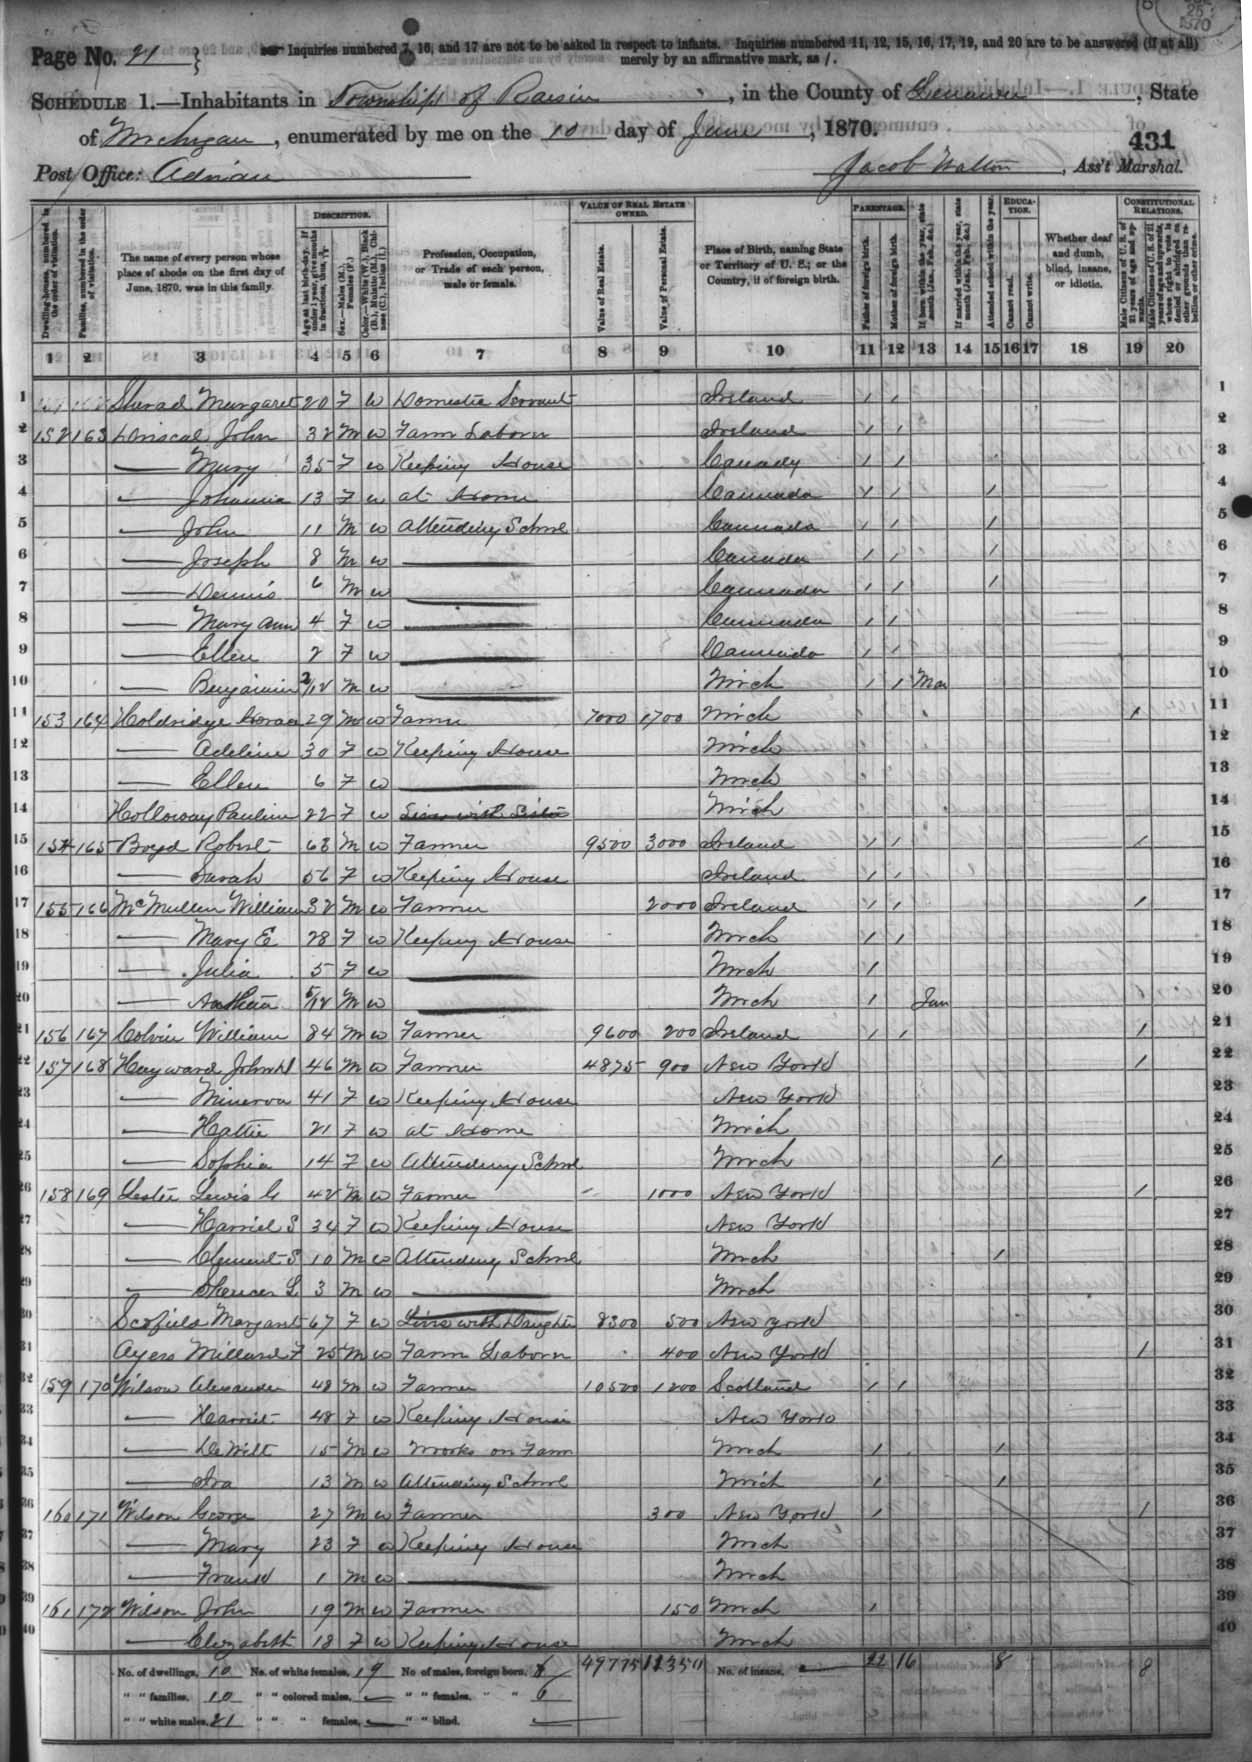 25
1870
Page No. 21
Inquiries numbered 7, 16, and 17 are not to be asked in respect to infants. Inquiries numbered 11, 12, 15, 16, 17, 19, and 20 are to be answered (if at all)
merely by an affirmative mark, as /.
SCHEDULE 1.—Inhabitants in Township of Raisin, in the County of Lenawee, State
of Michigan, enumerated by me on the 10 day of June, 1870.
431
Post Office: Adrian
Jacob Walton, Ass't Marshal.
DESCRIPTION.
VALUE OF REAL ESTATE OWNED.
PARENTAGE.
EDUCATION.
CONSTITUTIONAL RELATIONS.
Dwelling-houses, numbered in the order of visitation.
Families, numbered in the order of visitation.
The name of every person whose place of abode on the first day of June, 1870, was in this family.
Age at last birth-day. If under 1 year, give months in fractions, thus, 3/12
Sex.—Males (M.), Females (F.)
Color.—White (W.), Black (B.), Mulatto (M.), Chinese (C.), Indian (I.)
Profession, Occupation, or Trade of each person, male or female.
Value of Real Estate.
Value of Personal Estate.
Place of Birth, naming State or Territory of U. S.; or the Country, if of foreign birth.
Father of foreign birth.
Mother of foreign birth.
If born within the year, state month (Jan., Feb., &c.)
If married within the year, state month (Jan., Feb., &c.)
Attended school within the year.
Cannot read.
Cannot write.
Whether deaf and dumb, blind, insane, or idiotic.
Male Citizens of U. S. of 21 years of age and upwards.
Male Citizens of U. S. of 21 years of age and upwards, whose right to vote is denied or abridged on other grounds than rebellion or other crime.
1 2 3 4 5 6 7 8 9 10 11 12 13 14 15 16 17 18 19 20
1 Margaret 20 F W Domestic Servant Ireland / / 1
2 152 163 Driscal John 32 M W Farm Laborer Ireland / / 2
3 — Mary 35 F W Keeping House Canady / / 3
4 — Johanna 13 F W at Home Cannada / / / 4
5 — John 11 M W Attending School Cannada / / / 5
6 — Joseph 8 M W — Cannada / / / 6
7 — Dennis 6 M W — Cannada / / / 7
8 — Mary Ann 4 F W — Cannada / / 8
9 — Ellen 2 F W — Cannada / / 9
10 — Benjaimin 2/12 M W — Mich / / Mar 10
11 153 164 Holdridge Horace 29 M W Farmer 7000 1700 Mich / 11
12 — Adeline 30 F W Keeping House Mich 12
13 — Ellen 6 F W — Mich 13
14 Holloway Pauline 22 F W Lives with Sister Mich 14
15 154 165 Boyd Robert 63 M W Farmer 9500 3000 Ireland / / / 15
16 — Sarah 56 F W Keeping House Ireland / / 16
17 155 166 McMullen William 32 M W Farmer 2000 Ireland / / / 17
18 — Mary E 28 F W Keeping House Mich / / 18
19 — Julia 5 F W — Mich / 19
20 — 5/12 M W — Mich / Jan 20
21 156 167 Colvin William 84 M W Farmer 9600 200 Ireland / / / 21
22 157 168 Hayward John 46 M W Farmer 4875 900 New York / 22
23 — Minerva 41 F W Keeping House New York 23
24 — Hattie 21 F W at Home Mich 24
25 — Sophia 14 F W Attending School Mich / 25
26 158 169 Lester Lewis G 42 M W Farmer – 1000 New York / 26
27 — Harriet S 34 F W Keeping House New York 27
28 — Clement S 10 M W Attending School Mich / 28
29 — Spencer L 3 M W — Mich 29
30 Scofield Margaret 67 F W Lives with Daughter 8300 500 New York 30
31 Ayers Millard F 25 M W Farm Laborer 400 New York / 31
32 159 170 Wilson Alexander 48 M W Farmer 10500 1200 Scotland / / 32
33 — Harriet 48 F W Keeping House New York 33
34 — DeWilt 15 M W Works on Farm Mich / / 34
35 — Ira 13 M W Attending School Mich / / 35
36 160 171 Wilson George 27 M W Farmer 300 New York / / 36
37 — Mary 23 F W Keeping House Mich 37
38 — Frank 1 M W — Mich 38
39 161 172 Wilson John 19 M W Farmer 150 Mich / 39
40 — Elizabeth 18 F W Keeping House Mich 40
No. of dwellings, 10 No. of white females, 19 No. of males, foreign born, 49775 11350 No. of insane, — 22 16 8 8
" " families, 10 " " colored males, — " " females, " " 6
" " white males, 21 " " " females, — " " blind, —